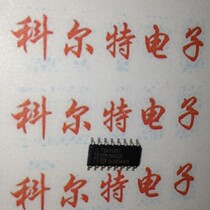 科尔特电子
科尔特电子
科尔特电子